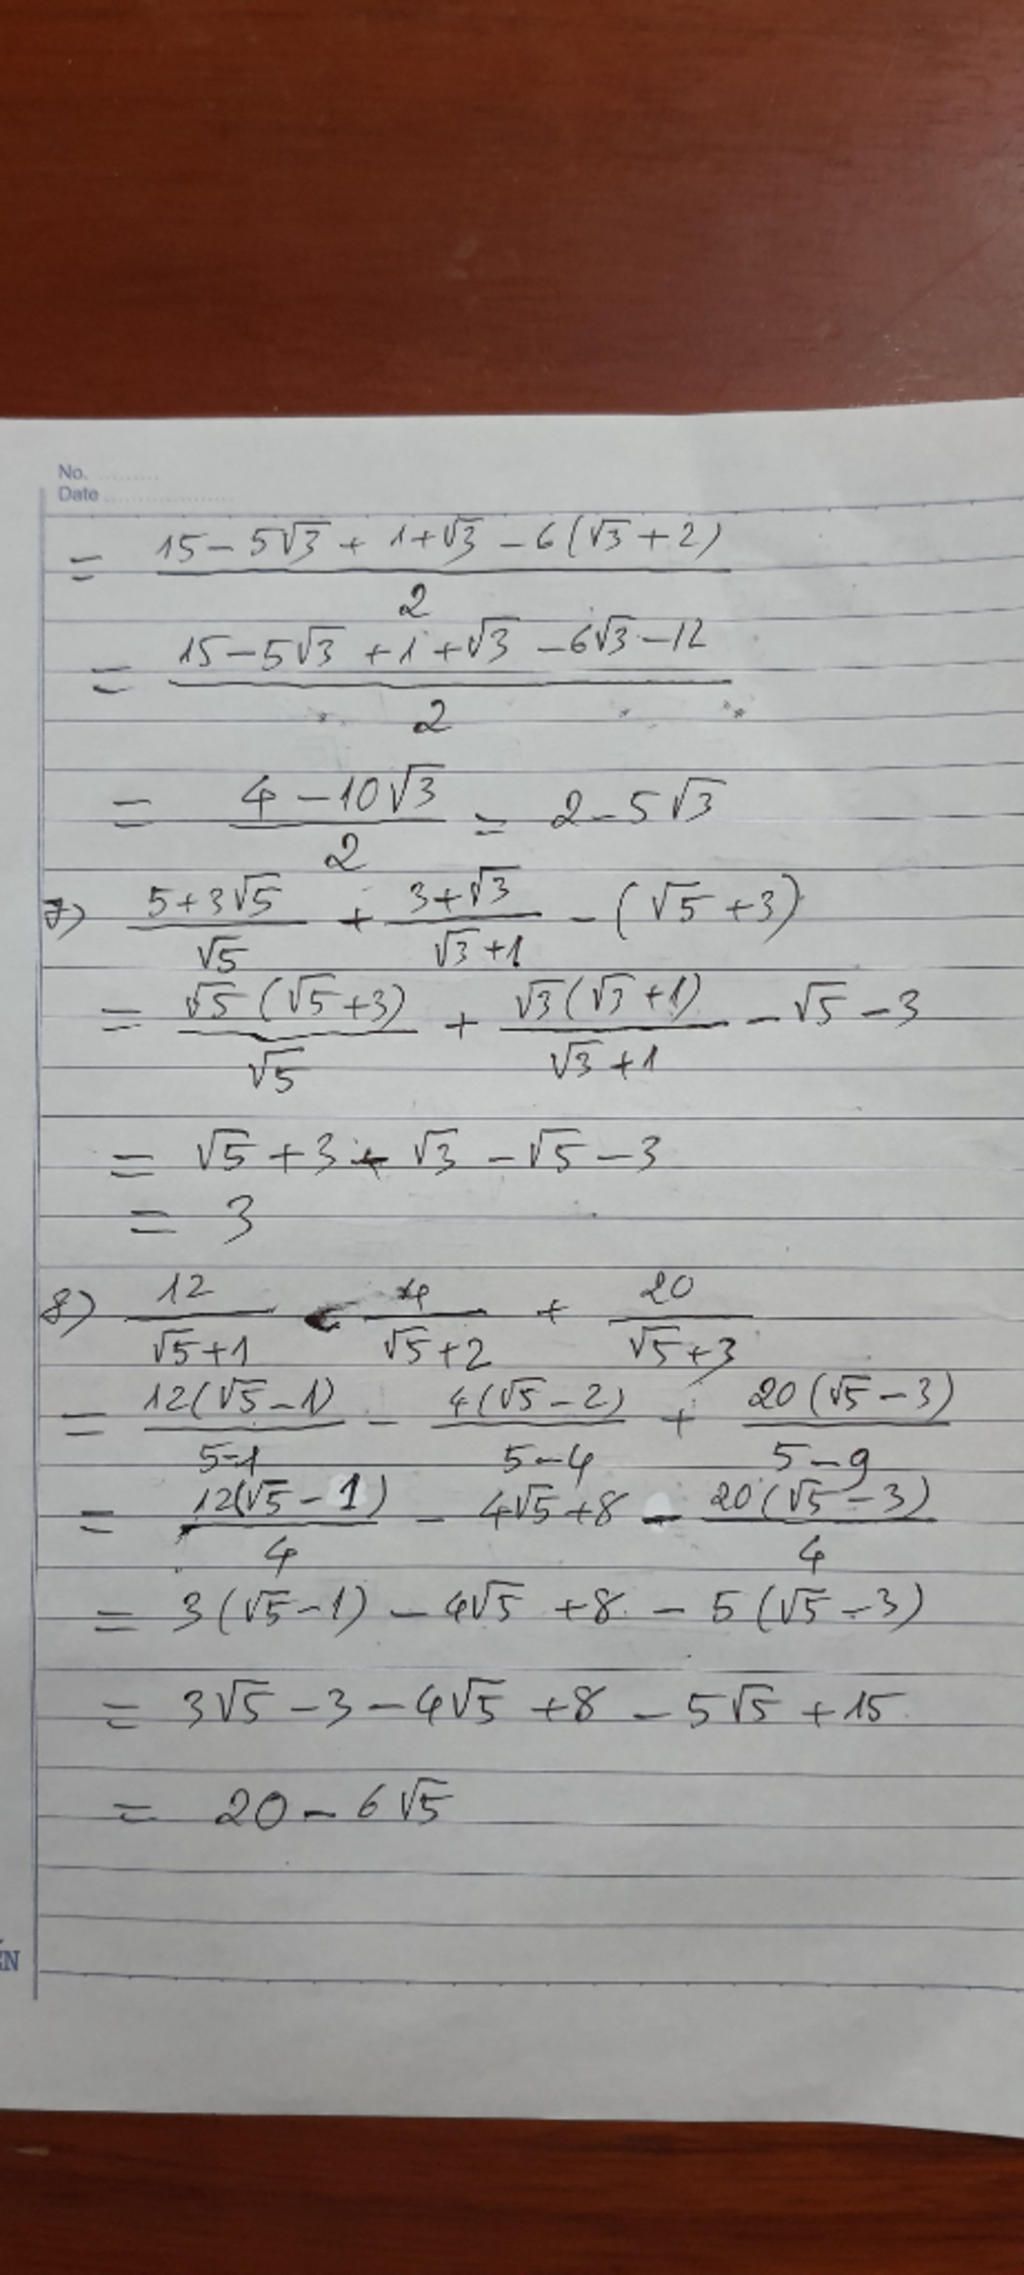 No. ..........
Date ....................
= (15 - 5√3 + 1 + √3 - 6(√3 + 2)) / 2
= (15 - 5√3 + 1 + √3 - 6√3 - 12) / 2
= (4 - 10√3) / 2 = 2 - 5√3
7) (5 + 3√5) / √5 + (3 + √3) / (√3 + 1) - (√5 + 3)
= √5(√5 + 3) / √5 + √3(√3 + 1) / (√3 + 1) - √5 - 3
= √5 + 3 + √3 - √5 - 3
= 3
8) 12 / (√5 + 1) - 4 / (√5 + 2) + 20 / (√5 + 3)
= 12(√5 - 1) / (5 - 1) - 4(√5 - 2) / (5 - 4) + 20(√5 - 3) / (5 - 9)
= 12(√5 - 1) / 4 - 4√5 + 8 - 20(√5 - 3) / 4
= 3(√5 - 1) - 4√5 + 8 - 5(√5 - 3)
= 3√5 - 3 - 4√5 + 8 - 5√5 + 15
= 20 - 6√5